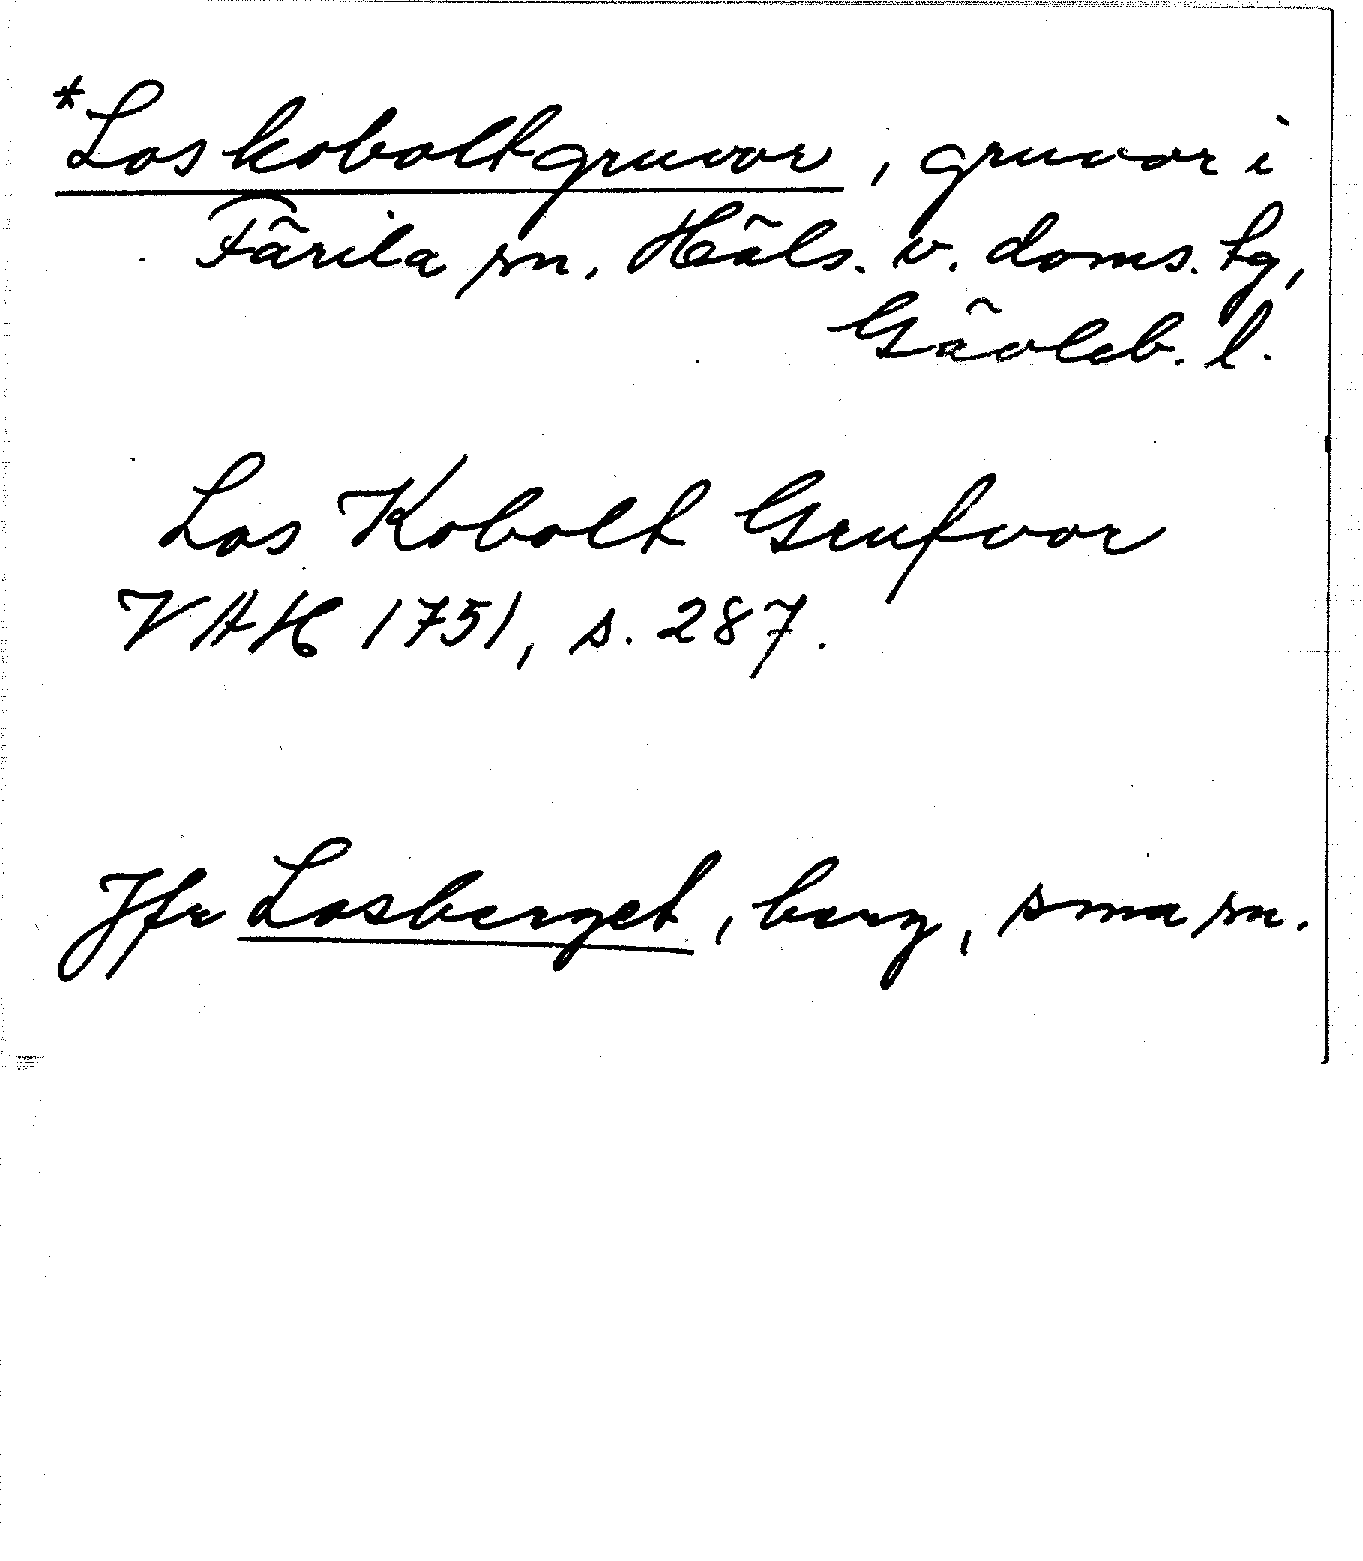 *Los koboltgruvor, gruvor i
Färila sn. Häls. v. doms. tg,
Gävleb. l.
Los Kobolt Grufvor
VAH 1751, s. 287.
Jfr Losberget, berg, sma sn.